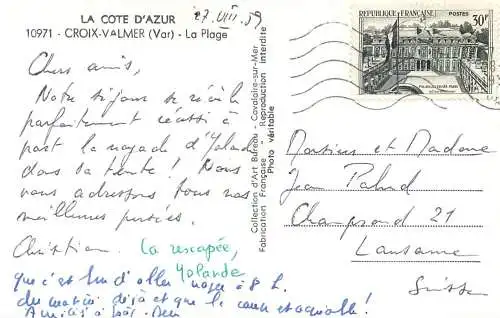 LA COTE D'AZUR
27. VIII. 59
10971 - CROIX-VALMER (Var) - La Plage
Chers amis,
Notre séjour se révèle
parfaitement réussi à
part la noyade d'Yolande
dans sa tente ! Nous
vous adressons tous nos
meilleures pensées.
Christian.
La rescapée,
Yolande
que c'est d'aller nager à 8 h.
du matin déjà et que le
Collection d'Art Bureau - Cavalaire-sur-Mer
Fabrication Française - Reproduction interdite
Photo véritable
RÉPUBLIQUE FRANÇAISE
POSTES
30F
PALAIS DE L'ELYSÉE PARIS
Monsieur et Madame
Jean
21
Lausanne
Suisse